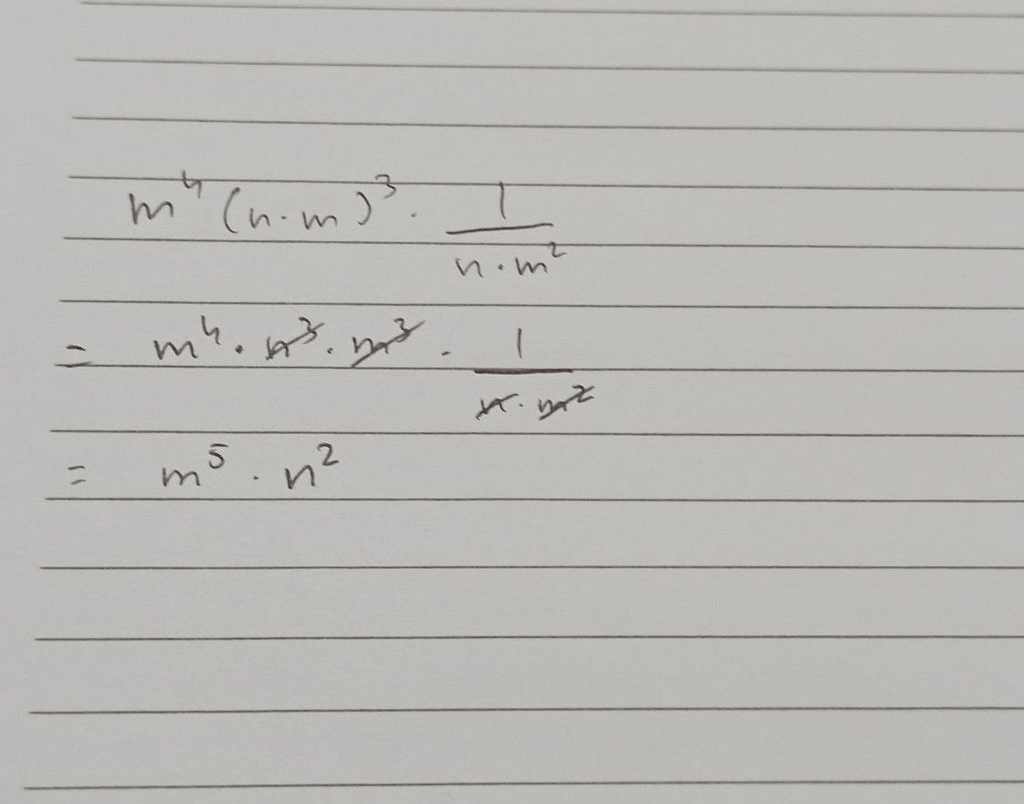 m⁴ (n·m)³ · 1/(n·m²)
= m⁴ · n³ · m³ · 1/(n·m²)
= m⁵ · n²